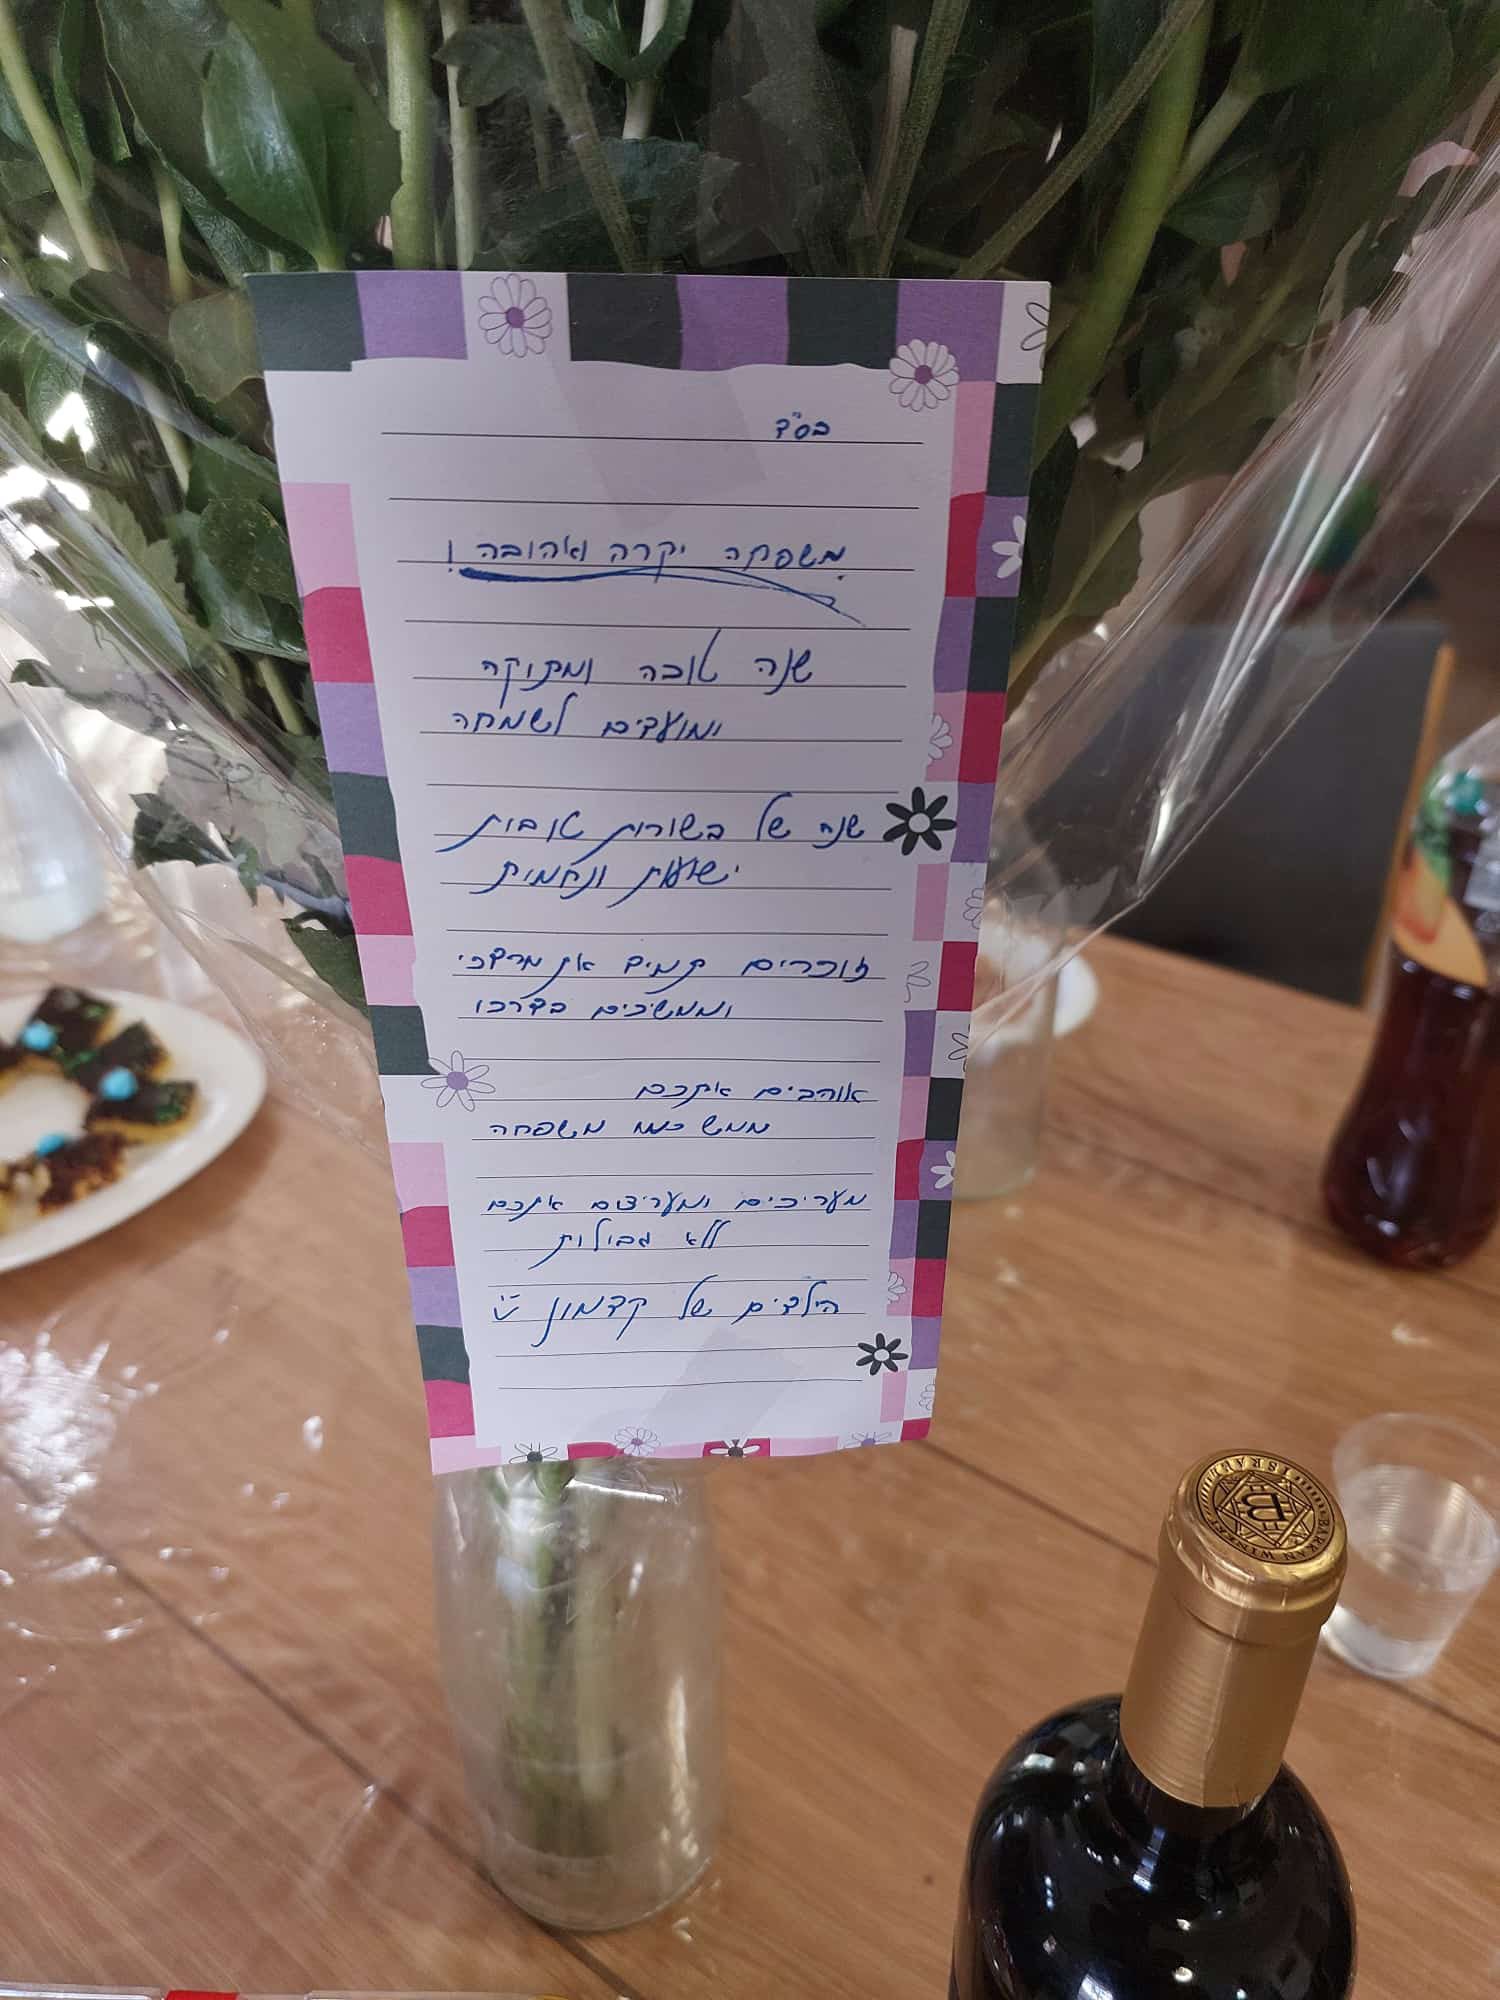 בס"ד
משפחה יקרה ואהובה!
שנה טובה ומתוקה
ומועדים לשמחה
שנה של בשורות טובות
ישועות ונחמות
זוכרים תמיד את מרדכי
וממשיכים בדרכו
אוהבים אתכם
ממש כמו משפחה
מעריכים ומעריצים אתכם
ללא גבולות
הילדים של קדמון
BARKAN WINERY
ISRAEL